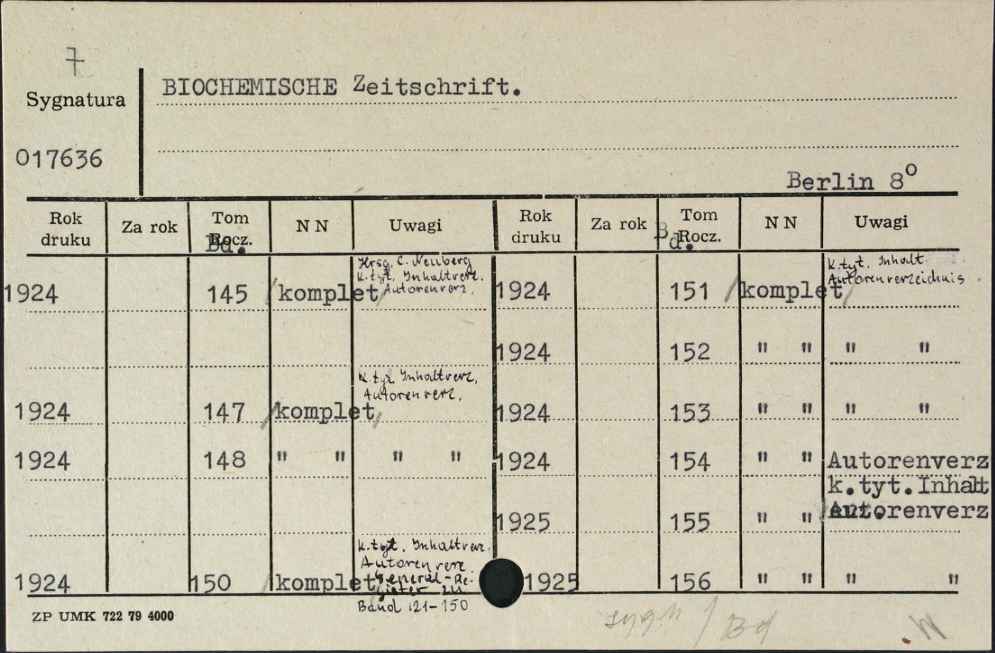 7
Sygnatura
BIOCHEMISCHE Zeitschrift.
017636
Berlin 8°
Rok druku Za rok Tom Rocz. Bd. N N Uwagi Rok druku Za rok Tom Rocz. Bd. N N Uwagi
Hrsg. C. Neuberg
k.tyt. Inhaltverz.
1924 145 /komplet/ Autorenverz.
k.tyt. Inhaltverz,
Autorenverz.
1924 147 /komplet/
1924 148 " " " "
k.tyt. Inhaltverz.
Autorenverz.
1924 150 /komplet/ General-Re-
gister zu
Band 121-150
k.tyt. Inhalt
Autorenverzeichnis
1924 151 /komplet/
1924 152 " " " "
1924 153 " " " "
1924 154 " " Autorenverz
k.tyt.Inhalt
1925 155 " " Autorenverz
1925 156 " " " "
ZP UMK 722 79 4000
sygn / Bd